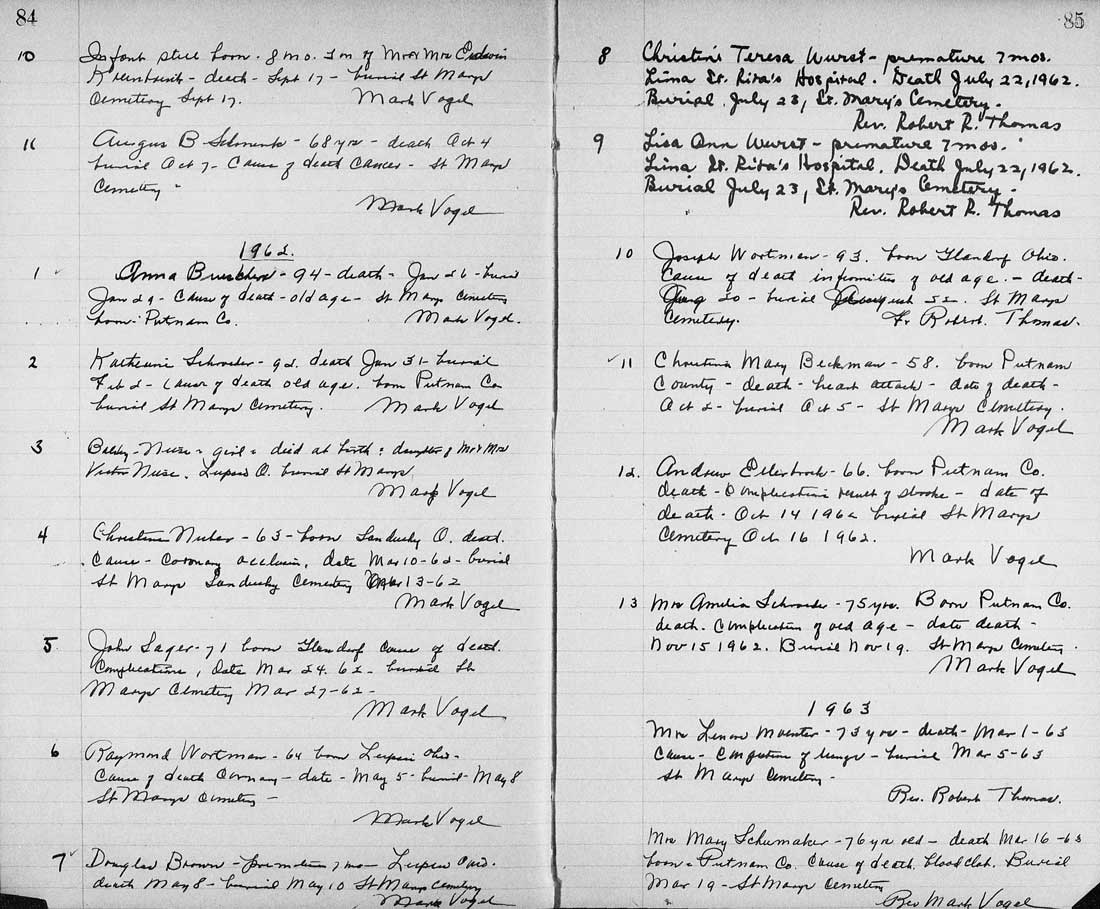 84
10 Infant still born - 8 mo. son of Mr & Mrs Edwin
- death - Sept 17 - burial St Marys
Cemetery Sept 17. Mark Vogel
11 August B - 68 yrs - death Oct 4
burial Oct 7 - Cause of death Cancer - St Marys
Cemetery -
Mark Vogel
1962.
1 Anna - 94 - death - Jan 26 - burial
Jan 29 - Cause of death - old age - St Marys Cemetery
born - Putnam Co. Mark Vogel.
2 Katherine Schroeder - 92. death Jan 31 - burial
Feb 2 - Cause of death old age. born Putnam Co
burial St Marys Cemetery. Mark Vogel
3 Baby - Nuse - girl - died at birth - daughter of Mr & Mrs
Victor Nuse. Leipsic O. burial St Marys
Mark Vogel
4 Christine - 63 - born Sandusky O. death.
Cause - Coronary occlusion, date Mar 10 - 62 - burial
St Marys Sandusky Cemetery Mar 13 - 62
Mark Vogel
5 John Sager - 71 born Glandorf cause of death.
Complications, date Mar 24. 62 - burial St
Marys Cemetery Mar 27 - 62 -
Mark Vogel
6 Raymond Wortman - 64 born Leipsic Ohio -
Cause of death Coronary - date - May 5 - burial - May 8
St Marys Cemetery -
Mark Vogel
7 Douglas Brown - premature 7 mo - Leipsic Ohio.
death May 8 - burial May 10 St Marys Cemetery
Mark Vogel
85
8 Christine Teresa Wurst - premature 7 mos.
Lima St. Rita's Hospital. Death July 22, 1962.
Burial July 23, St. Mary's Cemetery.
Rev. Robert R. Thomas
9 Lisa Ann Wurst - premature 7 mos.
Lima St. Rita's Hospital. Death July 22, 1962.
Burial July 23, St. Mary's Cemetery.
Rev. Robert R. Thomas
10 Joseph Wortman - 93. born Glandorf Ohio.
Cause of death infirmities of old age. - death -
Aug 20 - burial August 22. St Marys
Cemetery. Fr Robert Thomas.
11 Christina Mary Beckman - 58. born Putnam
County - death - heart attack - date of death -
Oct 2 - burial Oct 5 - St Marys Cemetery.
Mark Vogel
12. Andrew Ellerbrock - 66. born Putnam Co.
death - Complications result of stroke - date of
death - Oct 14 1962 burial St Marys
Cemetery Oct 16 1962.
Mark Vogel
13 Mrs Amelia Schroeder - 75 yrs. Born Putnam Co.
death. Complication of old age - date death -
Nov 15 1962. Burial Nov 19. St Marys Cemetery.
Mark Vogel
1963
Mrs Lenora - 73 yrs - death - Mar 1 - 63
Cause - of lungs - burial Mar 5 - 63
St Marys Cemetery -
Rev. Robert Thomas.
Mrs Mary Schumaker - 76 yr old - death Mar 16 - 63
born - Putnam Co. Cause of death. blood clot. Burial
Mar 19 - St Marys Cemetery
Rev Mark Vogel